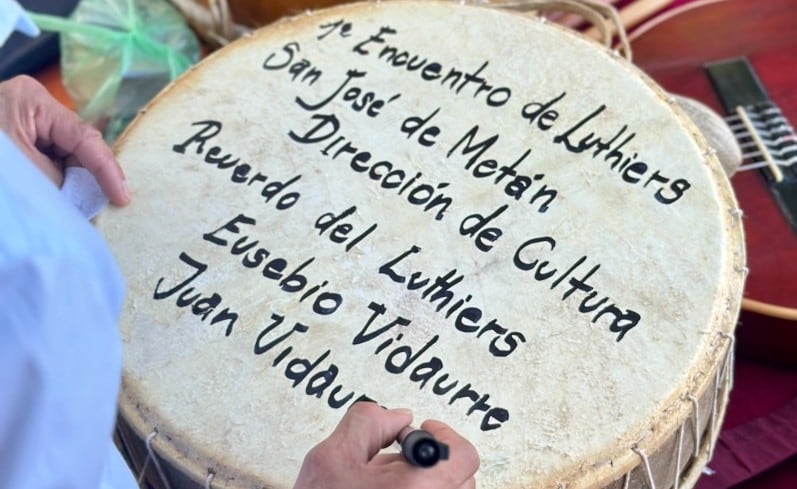 1e Encuentro de Luthiers
San José de Metán
Dirección de Cultura
Recuerdo del Luthiers
Eusebio Vidaurre
Juan Vidaur